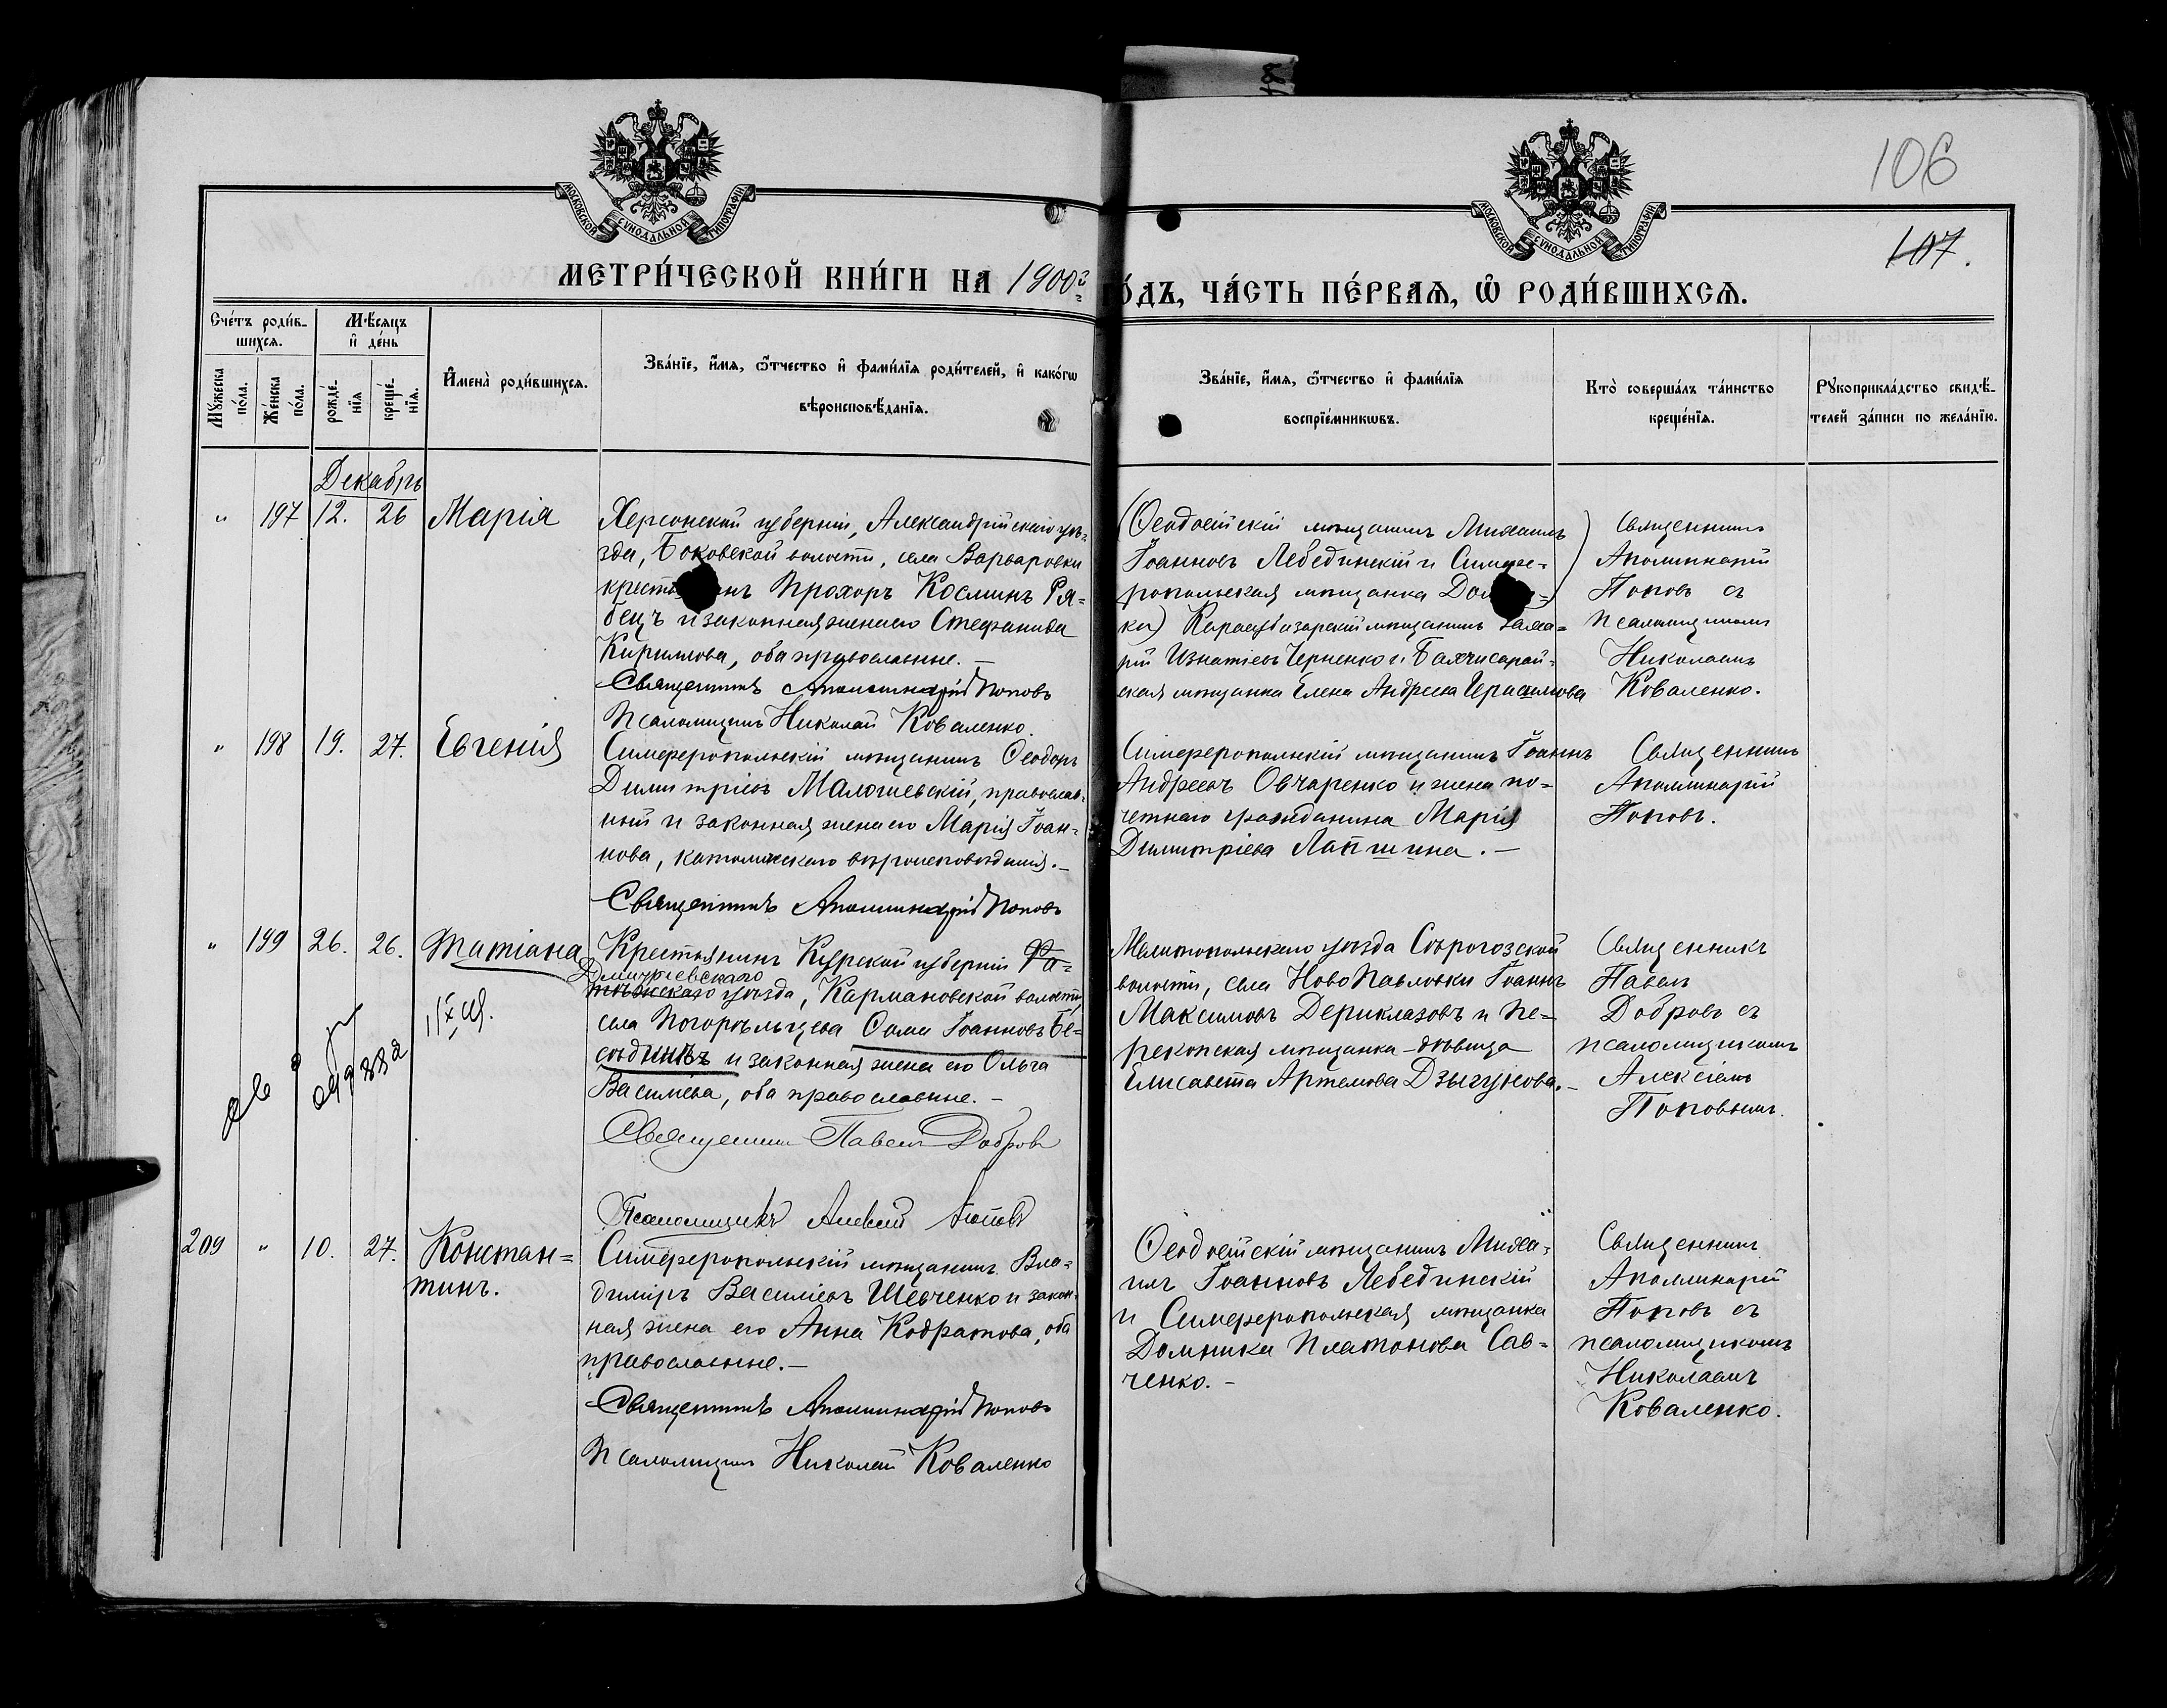 106
107.
МОСКОВСКОЙ СѴНОДАЛЬНОЙ ТИПОГРАФІИ
МОСКОВСКОЙ СѴНОДАЛЬНОЙ ТИПОГРАФІИ
МЕТРИ́ЧЕСКОЙ КНИ́ГИ НА 1900й
О́ДЪ, ЧА́СТЬ ПЕ́РВАѦ, Ѡ҆ РОДИ́ВШИХСѦ.
Сче́тъ роди́в-
шихсѧ.
Мѣ́сѧцъ
и҆ де́нь
Мꙋ́жеска
по́ла.
Же́нска
по́ла.
рожде́-
нїѧ
креще́-
нїѧ.
И҆мена̀ роди́вшихсѧ.
Зва́нїе, и҆́мѧ, ѻ҆́тчество и҆ фами́лїѧ роди́телей, и҆ како́гѡ
вѣроисповѣ́данїѧ.
Зва́нїе, и҆́мѧ, ѻ҆́тчество и҆ фами́лїѧ
воспрїе́мникѡвъ.
Кто̀ соверша́лъ та́инство
креще́нїѧ.
Рꙋкоприкла́дство свидѣ́-
телей за́писи по жела́нїю.
Декабрь
" 197 12. 26 Марія
Херсонской губерніи, Александрійскаго уѣ-
зда, Боковской волости, села Варваровки
Прохоръ Косминъ Ря-
бецъ и законная жена его Стефанида
Кириллова, оба православные. —
Священникъ Аполлинарій Поповъ
Псаломщикъ Николай Коваленко.
(Ѳеодосійскій мѣщанинъ Михаилъ
Іоанновъ Лебединскій и Симфе-
ропольская мѣщанка
ка) Карасубазарскій мѣщанинъ
рій Игнатіевъ Черненко и Бахчисарай-
ская мѣщанка Елена Андреева Герасимова
Священникъ
Аполлинарій
Поповъ съ
псаломщикомъ
Николаемъ
Коваленко.
" 198 19. 27. Евгенія
Симферопольскій мѣщанинъ Ѳеодоръ
Димитріевъ Малошевскій, православ-
ный и законная жена его Марія Іоан-
нова, католическаго вѣроисповѣданія. —
Священникъ Аполлинарій Поповъ
Симферопольскій мѣщанинъ Іоаннъ
Андреевъ Овчаренко и жена по-
четнаго гражданина Марія
Димитріева Лапшина. —
Священникъ
Аполлинарій
Поповъ.
" 199 26. 26. Татіана
Крестьянинъ Курской губерніи Фа-
Дмитріевскаго
тежскаго уѣзда, Кармановской волости,
села Погорѣльцева Савва Іоанновъ Бе-
сѣдинъ и законная жена его Ольга
Василіева, оба православные. —
Священникъ Павелъ Добровъ
Псаломщикъ Алексій Поповъ
Мелитопольскаго уѣзда Сѣрогозской
волости, села НовоПавловки Іоаннъ
Максимовъ Дериклазовъ и Пе-
рекопская мѣщанка – дѣвица
Елисавета Артемова Дзыгунова. –
Священникъ
Павелъ
Добровъ съ
псаломщикомъ
Алексіемъ
Поповымъ.
209 " 10. 27. Констан=
тинъ.
Симферопольскій мѣщанинъ Вла-
диміръ Василіевъ Шевченко и закон-
ная жена его Анна Кодратова, оба
православные. —
Священникъ Аполлинарій Поповъ
Псаломщикъ Николай Коваленко
Ѳеодосійскій мѣщанинъ Миха-
илъ Іоанновъ Лебединскій
и Симферопольская мѣщанка
Домника Платонова Сав-
ченко. –
Священникъ
Аполлинарій
Поповъ съ
псаломщикомъ
Николаемъ
Коваленко.